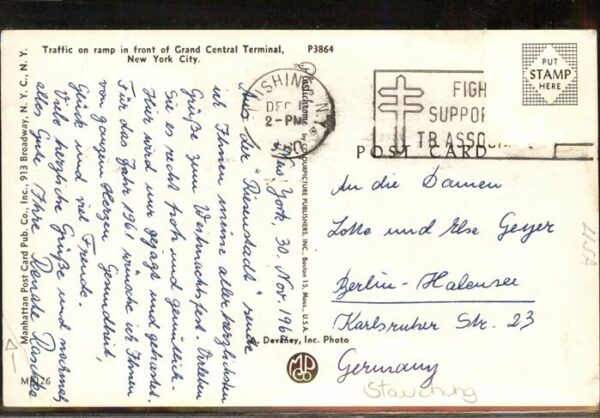 Traffic on ramp in front of Grand Central Terminal,
New York City.
P3864
New York, 30. Nov. 1960
Aus der "Riesenstadt" sende
ich Ihnen meine allerherzlichsten
Grüße zum Weihnachtsfest. Verleben
Sie es recht froh und gemütlich.
Hier wird nur gejagt und gehastet.
Für das Jahr 1961 wünsche ich Ihnen
von ganzem Herzen Gesundheit,
Glück und viel Freude.
Viele herzliche Grüße und nochmals
alles Gute Ihre Renate Raschke
Manhattan Post Card Pub. Co., Inc., 913 Broadway, N. Y. C., N. Y.
MP126
Plastichrome by COLOURPICTURE PUBLISHERS, INC., Boston 15, Mass., U.S.A.
SHING
N.Y.
DEC
2-PM
FIGH
SUPPOR
TB ASSO
PUT
STAMP
HERE
POST CARD
An die Damen
Lotte und Else Geyer
Berlin-Halensee
Karlsruher Str. 23
Germany
USA
Stauchung
Devaney, Inc. Photo
MPCO